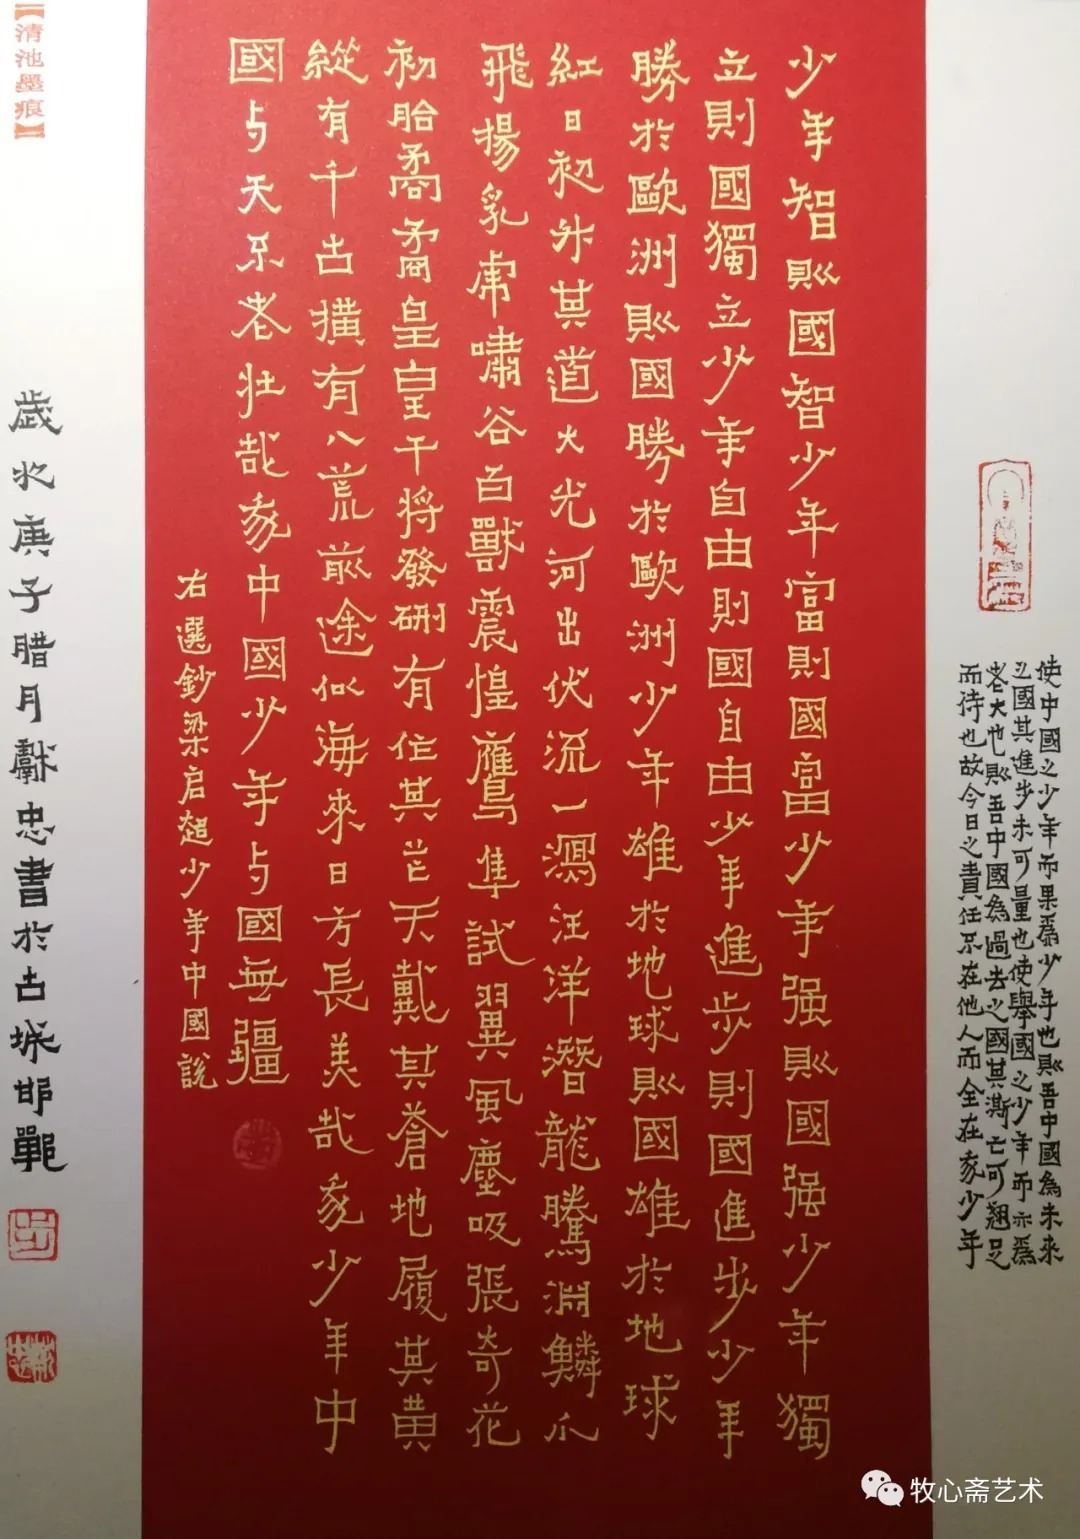 使中國之少年而果為少年也則吾中國為未來
之國其進步未可量也使舉國之少年而亦為
老大也則吾中國為過去之國其澌亡可翹足
而待也故今日之責任不在他人而全在我少年
少年智則國智少年富則國富少年强則國强少年獨
立則國獨立少年自由則國自由少年進步則國進步少年
勝於歐洲則國勝於歐洲少年雄於地球則國雄於地球
紅日初升其道大光河出伏流一瀉汪洋潛龍騰淵鱗爪
飛揚乳虎嘯谷百獸震惶鷹隼試翼風塵吸張奇花
初胎矞矞皇皇干將發硎有作其芒天戴其蒼地履其黄
縱有千古橫有八荒前途似海來日方長美哉我少年中
國与天不老壯哉我中國少年与國無疆
右選鈔梁启超少年中國說
歲次庚子腊月獻忠書於古城邯鄲
【清池墨痕】
牧心斋艺术